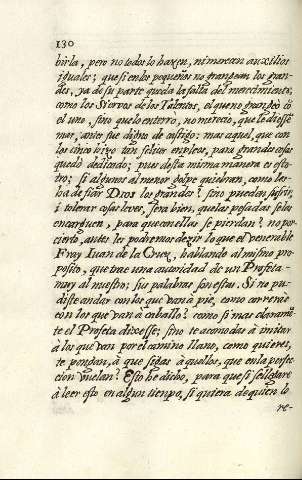 130
birla, pero no todos lo hazen, ni merecen auxilios
iguales; que si en los pequeños no grangean los gran-
des, ya de su parte queda la falta del merecimiento,
como los Siervos de los Talentos, el que no grangeò cõ
el uno, sino que lo enterrò, no mereciò, que le diesse
mas, antes fue digno de castigo: mas aquel, que con
los cinco hizo tan felices empleos, para grandes cosas
quedò dedicado; pues desta misma manera es esto-
tro; si algunos al menor golpe quiebran, como los
ha de fiar Dios los grandes? sino pueden sufrir,
i tolerar cosas leves, sera bien, que las pesadas se les
encarguen, para que con ellas se pierdan? no por-
cierto, antes les podremos dezir lo que el Venerable
Fray Iuan de la Cruz, hablando al mismo pro-
posito, que trae una autoridad de un Profeta
muy al nuestro; sus palabras son estas. Si no pu-
diste andar con los que van à pie, como correràs
con los que van à caballo? como si mas claramẽ-
te el Profeta dixesse; sino te acomodas à imitar
à los que van por el camino llano, como quieres,
te pongan, à que sigas à aquellos, que en la perfec
cion vuelan? Esto he dicho, para que si se llegare
à leer esto en algun tiempo, si quiera de quien lo
re-